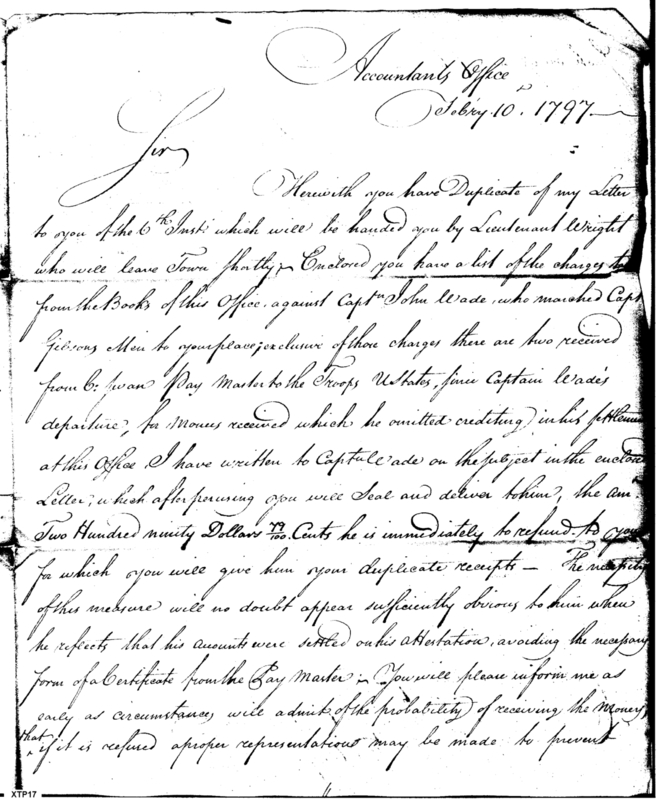 Accountants Office
Feb'ry. 10. 1797
Sir
Herewith you have Duplicate of my Letter
to you of the 6th Inst. which will be handed you by Lieutenant Wright
who will leave Town shortly, Enclosed you have a list of the charges
from the Books of this Office, against Captn. John Wade, who marched Capt
Gibsons Men to your place; exclusive of those charges there are two received
from C. Swan Pay Master to the Troops U States, since Captain Wade's
departure, for Monies received which he omitted crediting in his settlement
at this Office I have written to Captn Wade on the subject in the enclosed
Letter, which after perusing you will Seal and deliver to him, the am.
Two Hundred ninety Dollars 79/100 Cents he is immediately to refund to you
for which you will give him your duplicate receipts — The necessity
of this measure will no doubt appear sufficiently obvious to him when
he reflects that his amounts were settled on his attestation, avoiding the necessary
form of a Certificate from the Pay Master, You will please inform me as
early as circumstances will admit of the probability of receiving the Money,
that if it is refused a proper representation may be made to prevent
XTP17